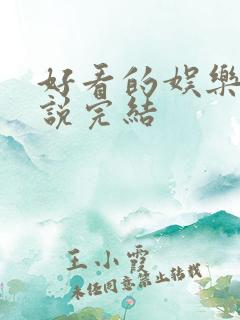 好看的娱樂
說完結
王小霞
未经同意禁止转载